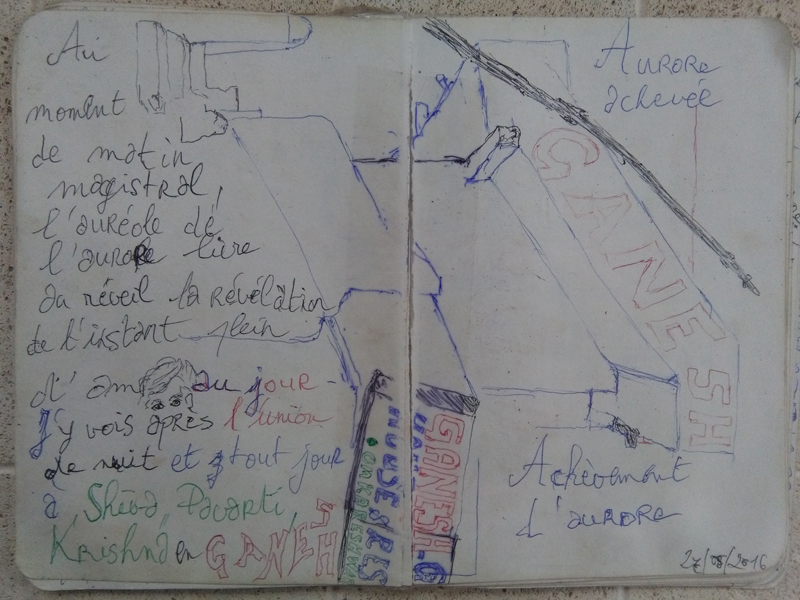 Au
moment
de matin
magistral,
l'auréole de
l'aurore livre
au réveil la révélation
de l'instant plein
d'am au jour -
J'y vois après l'union
de nuit et tout jour
à Shiva, Parvarti,
Krishna en GANESH
GANESH-G
Aurore
achevée
GANESH
Achèvement
d'aurore
27/08/2016